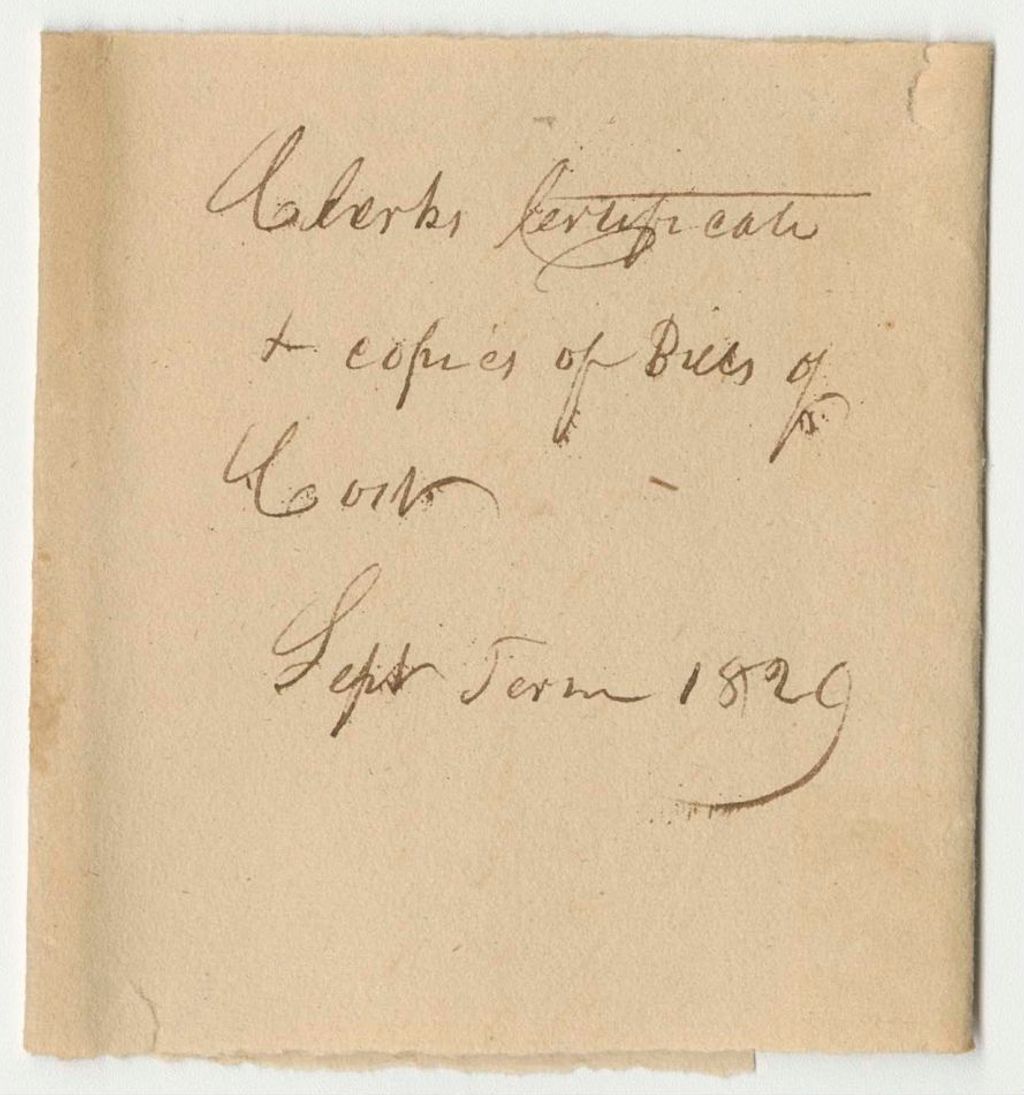 Clerks Certificate
& copies of Bills of
Cost
Sept Term 1829